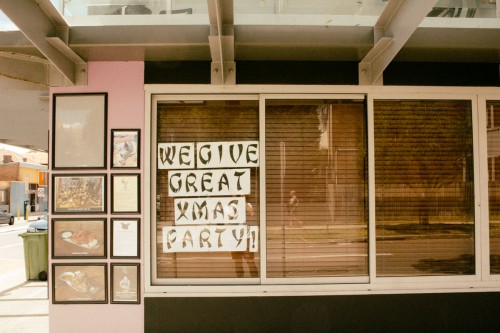 WE GIVE
GREAT
XMAS
PARTY!